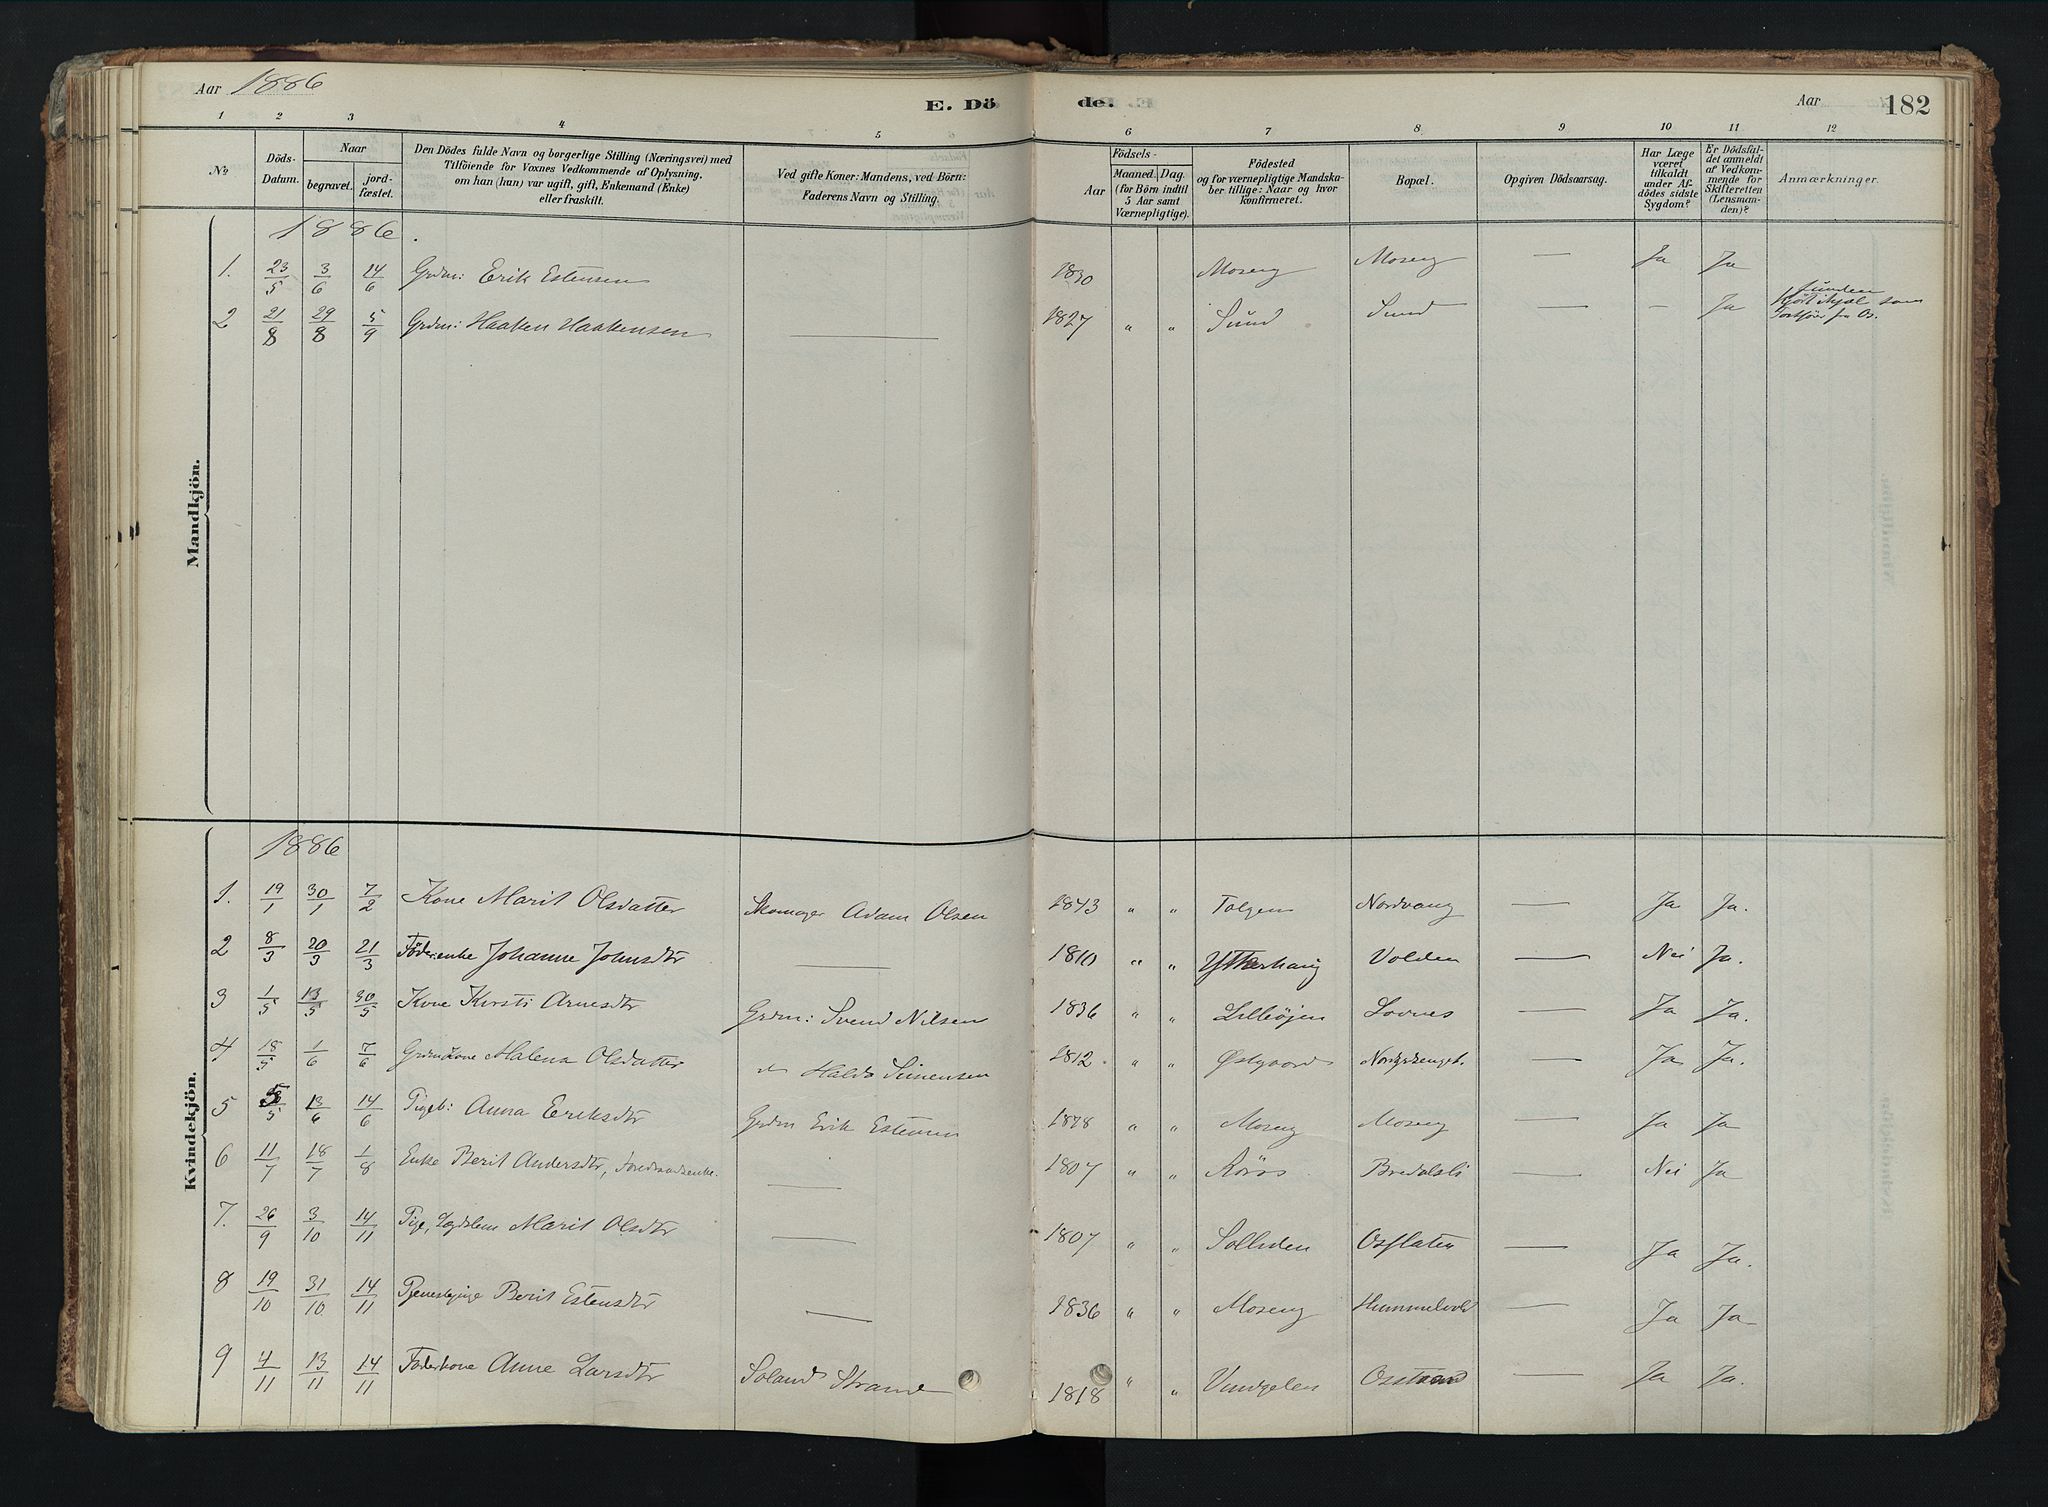 Aar 1886
E. Dö
de.
Aar
182
1 2 3 4 5 6 7 8 9 10 11 12
No
Döds-
Datum.
Naar
begravet.
jord-
fæstet.
Den Dödes fulde Navn og borgerlige Stilling (Næringsvei) med
Tilföiende for Voxnes Vedkommende af Oplysning,
om han (hun) var ugift, gift, Enkemand (Enke)
eller fraskilt.
Ved gifte Koner: Mandens, ved Börn:
Faderens Navn og Stilling.
Födsels-
Aar
Maaned. Dag.
(for Börn indtil
5 Aar samt
Værnepligtige).
Födested
og for værnepligtige Mandska-
ber tillige: Naar og hvor
konfirmeret.
Bopæl.
Opgiven Dödsaarsag.
Har Læge
været
tilkaldt
under Af-
dödes sidste
Sygdom?
Er Dödsfal-
det anmeldt
af Vedkom-
mende for
Skifteretten
(Lensman-
den)?
Anmærkninger.
Mandkjön.
1886.
1. 23/5 3/6 14/6 Grdm: Erik Estensen 1830 Moseng Moseng — Ja Ja
2 21/8 29/8 5/9 Grdm: Haaken Haakensen — 1827 " " Sund Sund — - Ja
ihjel som
fra Os.
Kvindekjön.
1886
1. 19/1 30/1 7/2 Kone Marit Olsdatter Skomager Adam Olsen 1843 " " Tolgen Nordvang — Ja Ja.
2 8/3 20/3 21/3 Föderenke Johanne Johnsdtr — 1810 " " Ytterhaug Volden — Nei Ja.
3 1/5 13/5 30/5 Kone Kirsti Arnesdtr Grdm: Svend Nilsen 1836 " " Lilleöjen — Ja Ja.
4 18/5 1/6 7/6 Grdm Kone Malena Olsdatter Simensen 1812 " " Østgaard — Ja Ja.
5 13/6 14/6 Pigeb: Anna Eriksdtr Grdm Erik Estensen 1878 " " Moseng Moseng — Ja Ja
6 11/7 18/7 1/8 Enke Berit Andersdtr, — 1807 " " Röros Bredalsli — Nei Ja
7. 26/9 3/10 14/11 Pige, Lægdslem Marit Olsdtr — 1807 " " Solliden Osflaten — Ja Ja.
8 19/10 31/10 14/11 Tjenestepige Berit Estensdtr — 1836 " " Moseng Hummelvold — Ja Ja
9 4/11 13/11 14/11 Föderkone Anne Larsdtr 1818 " " Vingelen — Ja Ja.